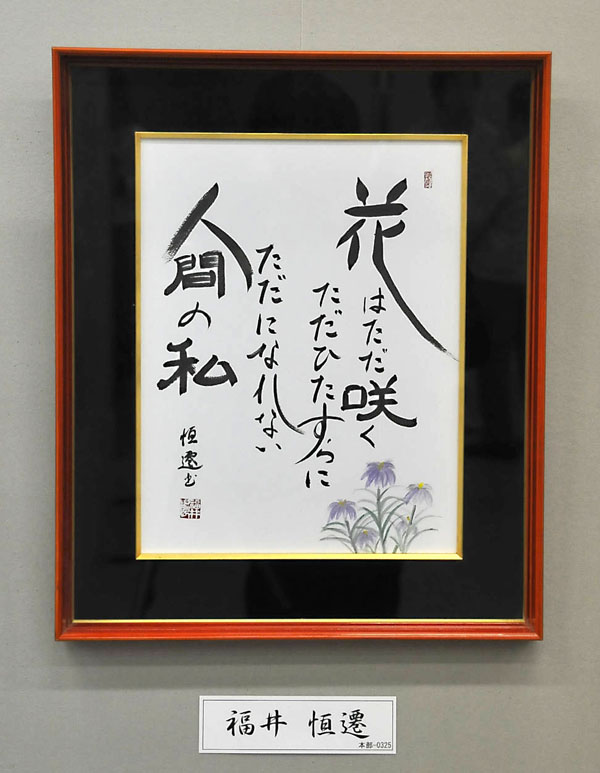 花はただ咲く
ただひたすらに
ただになれない
人間の私
恒遷书
福井 恒遷
本部-0325